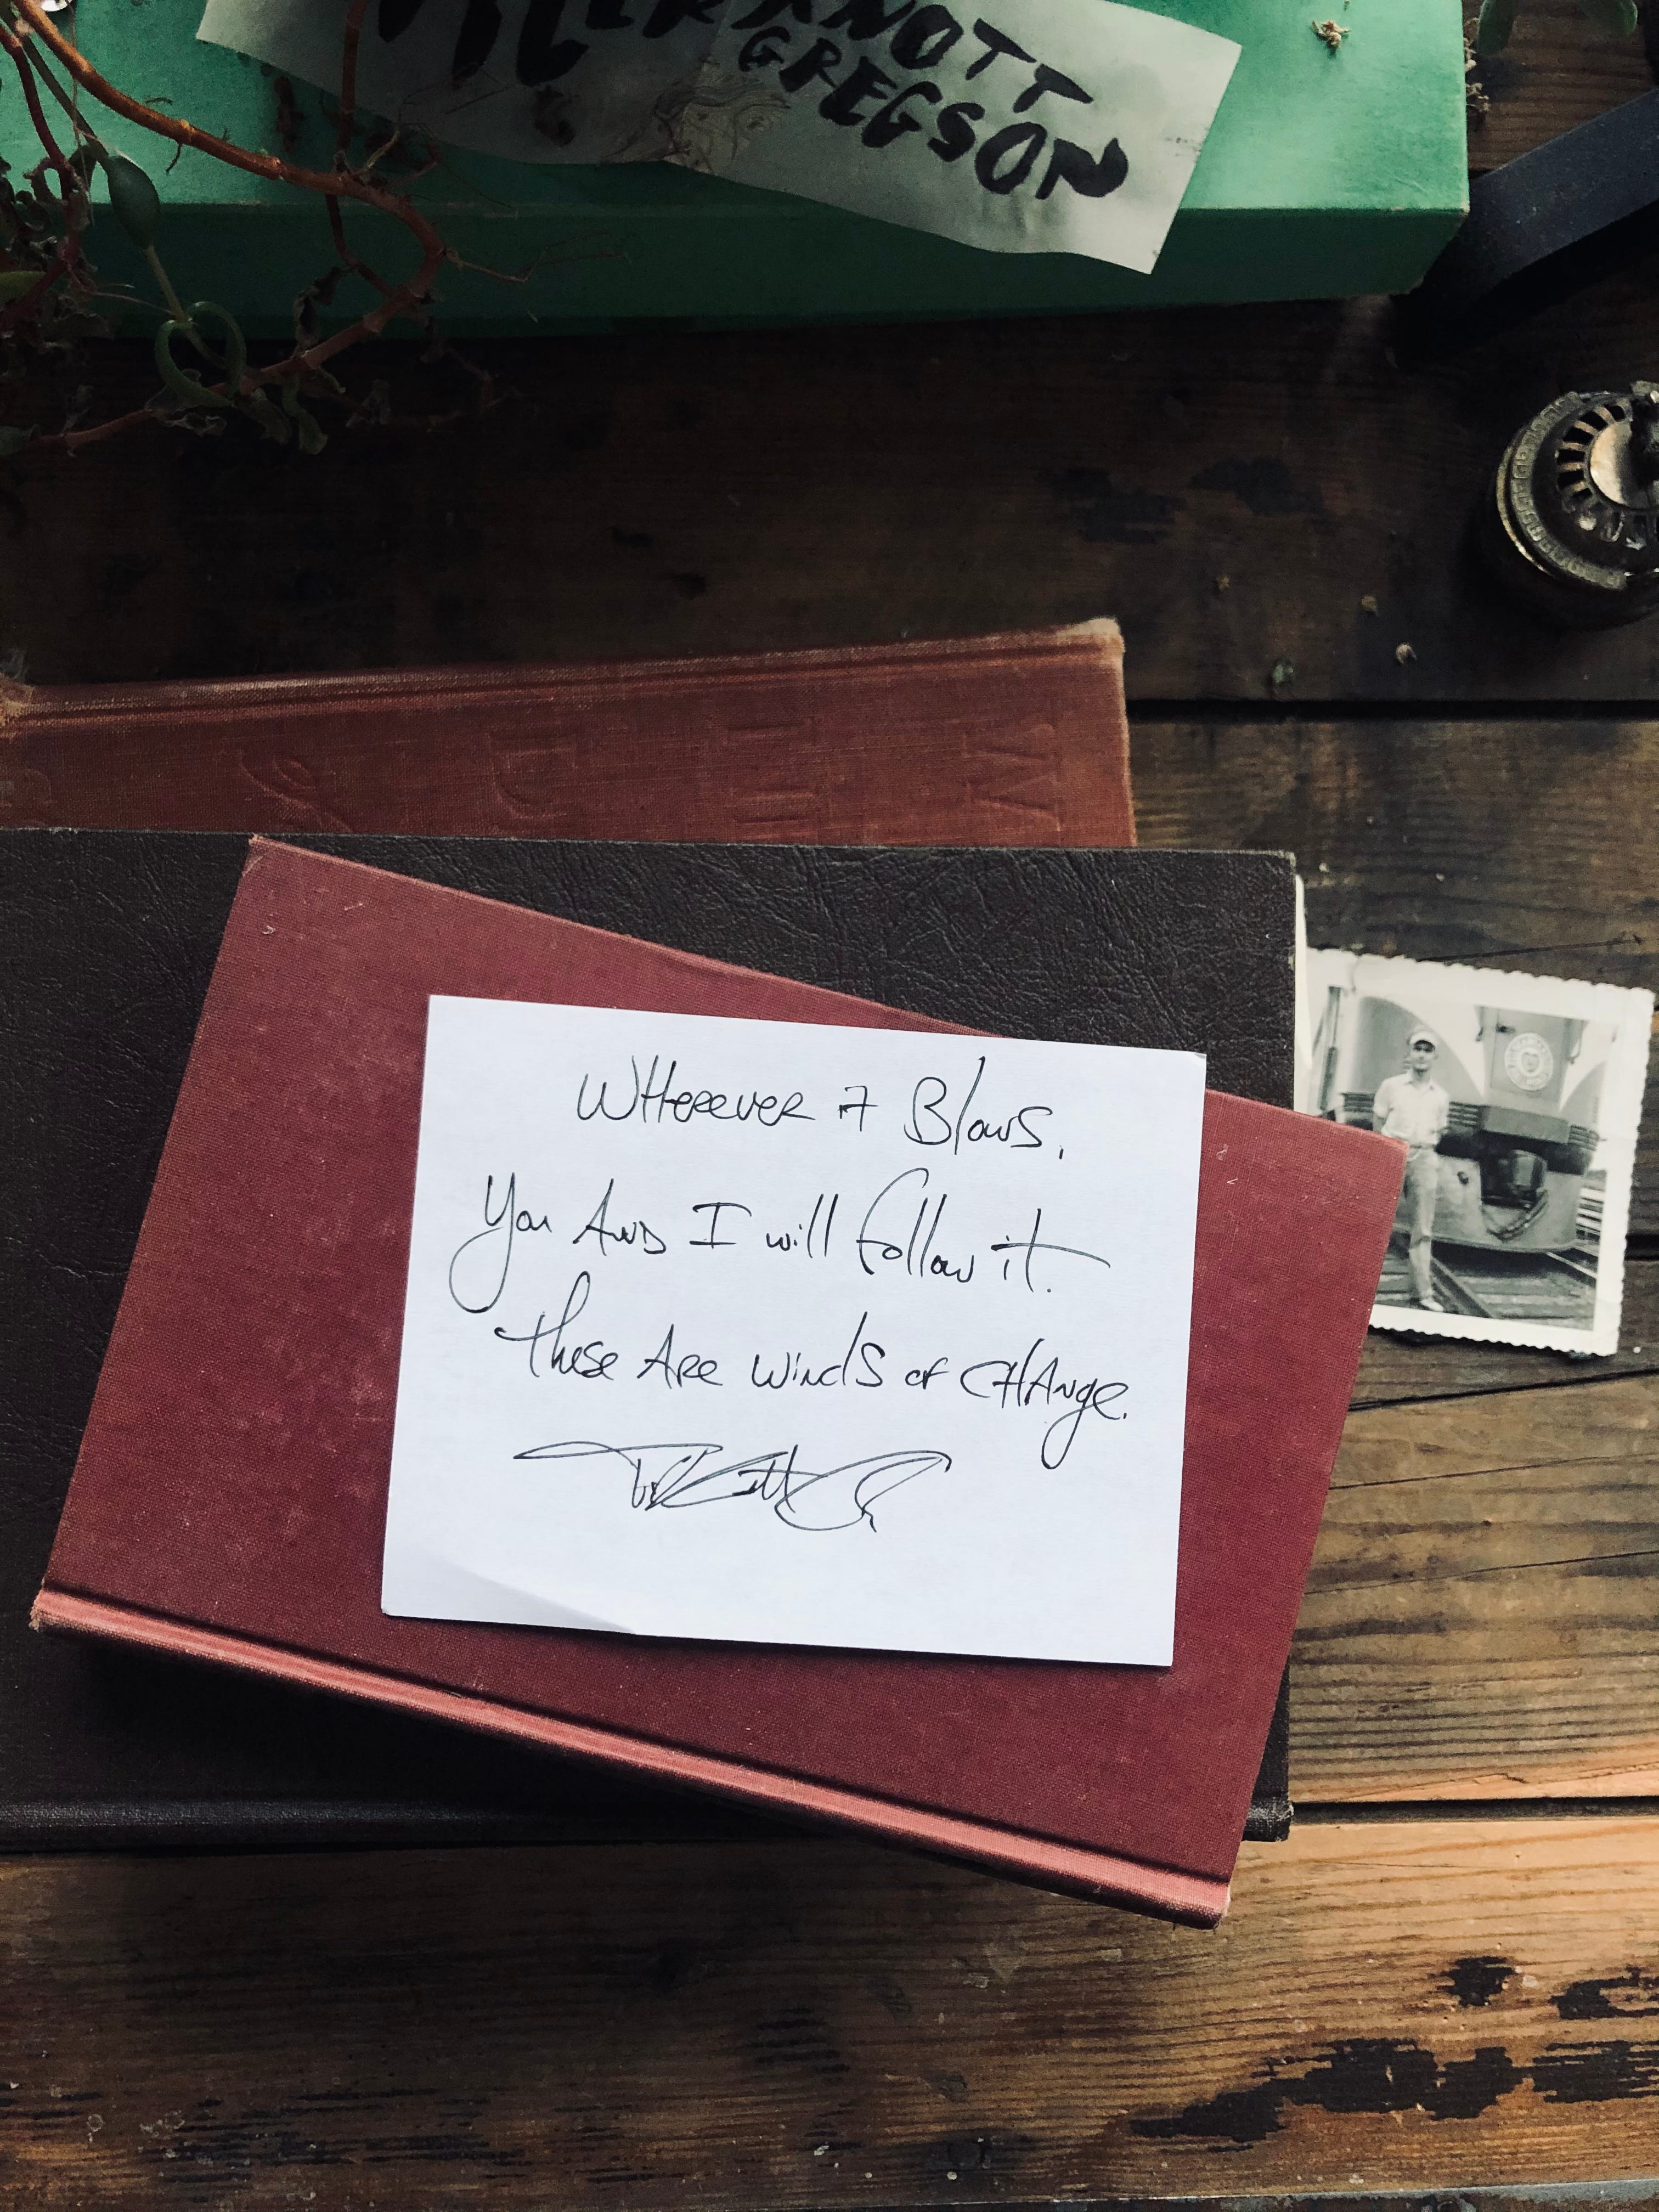 KNOTT
GREGSON
WHerever it Blows,
You AnD I will follow it.
these Are winds of CHAnge.